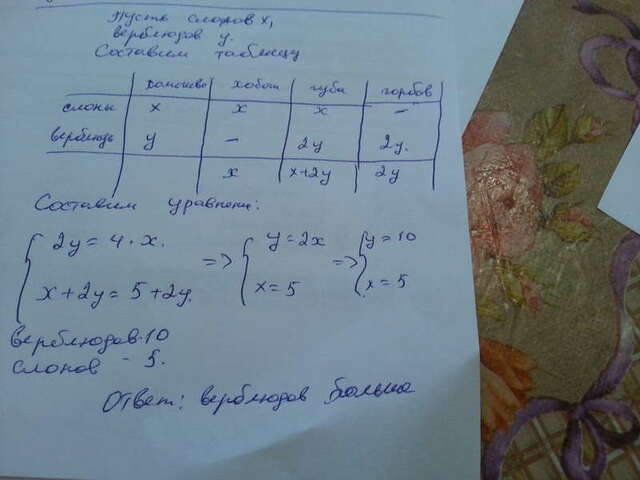 Пусть слонов x,
верблюдов y.
Составим таблицу
хобот губы горбов
слоны x x x –
верблюды y – 2y 2y.
x x+2y 2y
Составим уравнени:
2y = 4 · x. => y = 2x => y = 10
x + 2y = 5 + 2y. x = 5 x = 5
верблюдов-10
слонов - 5.
Ответ: верблюдов больше